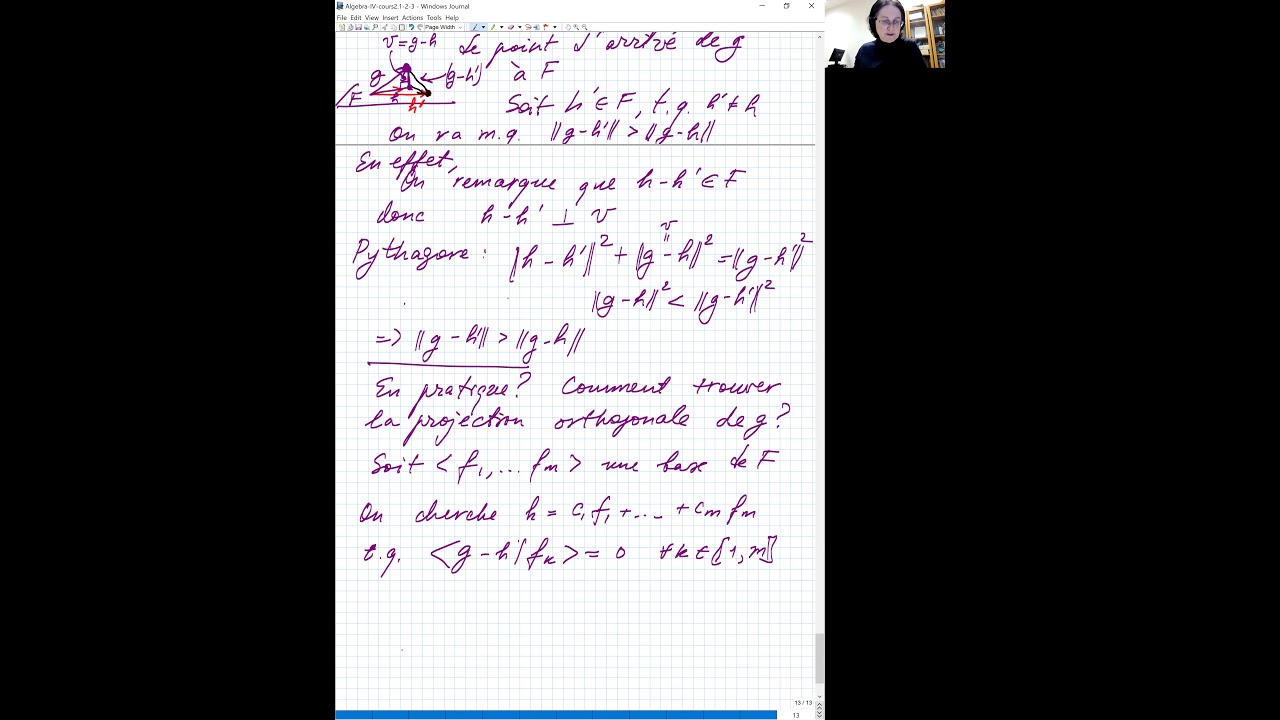 Algebra-IV-cours2.1-2-3 - Windows Journal
File Edit View Insert Actions Tools Help
Page Width
v = g-h le point d'arrivé de g
g (g-h') à F
F h h'
Soit h' ∈ F, t.q. h' ≠ h
On va m.q. ||g-h'|| > ||g-h||
En effet,
On remarque que h-h' ∈ F
donc h-h' ⊥ v
v
||
Pythagore : ||h-h'||² + ||g-h||² = ||g-h'||²
||g-h||² < ||g-h'||²
=> ||g-h'|| > ||g-h||
En pratique? Comment trouver
la projection orthogonale de g?
Soit <f₁,... fm> une base de F
On cherche h = c₁f₁ +... + cm fm
t.q. <g-h|fk> = 0 ∀k ∈ [1, m]
13 / 13
13